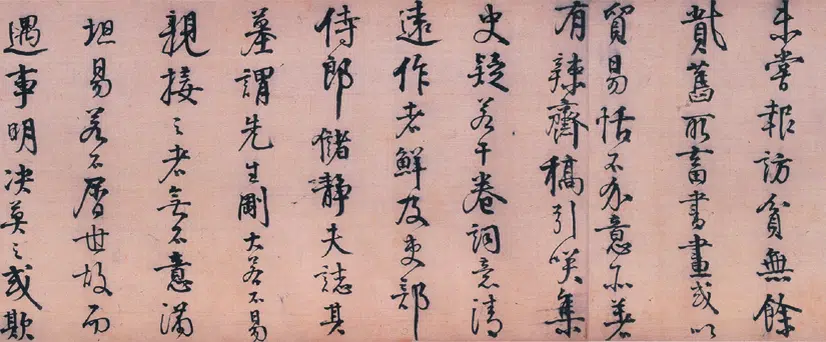 未嘗報訪貧無餘
貲舊所畜書畫或以
貿易恬不介意所著
有辣齋稿引咲集
史疑若干卷詞意清
遠作者鮮及吏部
侍郎儲靜夫誌其
墓謂先生剛大若不易
親接之者無不意滿
坦易若不曆世故而
遇事明決莫之或欺